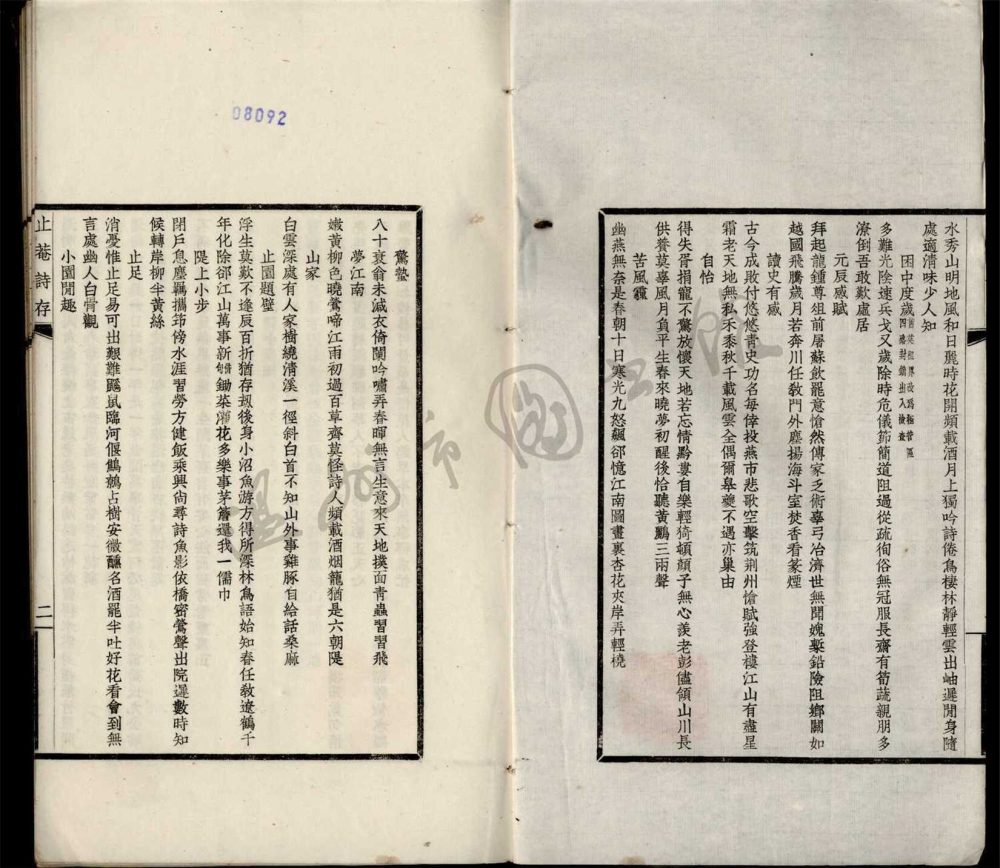 水秀山明地風和日麗時花開頻載酒月上獨吟詩倦鳥棲林靜輕雲出岫遲閒身隨
處適清味少人知
困中度歲
多難光陰速兵戈又歲除時危儀節簡道阻過從疏徇俗無冠服長齋有筍蔬親朋多
潦倒吾敢歎處居
元辰感賦
拜起龍鍾尊俎前屠蘇飲罷意愴然傳家乏術辜弓冶濟世無聞媿槧鉛險阻鄉關如
越國飛騰歲月若奔川任教門外塵揚海斗室焚香看篆煙
讀史有感
古今成敗付悠悠青史功名每倖投燕市悲歌空擊筑荆州愴賦強登樓江山有盡星
霜老天地無私禾黍秋千載風雲全偶爾皋夔不遇亦巢由
自怡
得失胥捐寵不驚放懷天地若忘情黔婁自樂輕猗頓顏子無心羨老彭儘領山川長
供養莫辜風月負平生春來曉夢初醒後恰聽黃鸝三兩聲
苦風霾
幽燕無奈是春朝十日寒光九怒飆卻憶江南圖畫裏杏花夾岸弄輕橈
驚蟄
八十衰翁未減衣倚闌吟嘯弄春暉無言生意來天地撲面青蟲習習飛
夢江南
嫩黃柳色曉鶯啼江雨初過百草齊莫怪詩人頻載酒烟籠猶是六朝隄
山家
白雲深處有人家樹繞清溪一徑斜白首不知山外事雞豚自給話桑麻
止園題壁
浮生莫歎不逢辰百折猶存刼後身小沼魚游方得所深林鳥語始知春任教遼鶴千
年化除卻江山萬事新鋤菜灌花多樂事茅簷還我一儒巾
隄上小步
閉戶息塵羈攜筇傍水涯習勞方健飯乘興尚尋詩魚影依橋密鶯聲出院遲數時知
候轉岸柳半黃絲
止足
消憂惟止足易可出艱難鼴鼠臨河偃鷦鷯占樹安微醺名酒罷半吐好花看會到無
言處幽人白骨觀
小園閒趣
止菴詩存
二
08092